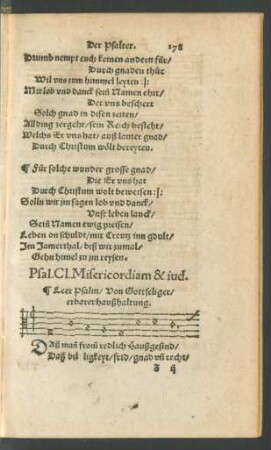 Der Psalter. 178
Drumb nempt euch keinen andern für/
Durch gnaden thür
Wil vns zum himmel leyten :|:
Mit lob vnd danck seim Namen ehrt/
Der vns beschert
Solch gnad in disen zeiten/
All ding zergeht/ sein Reich besteht/
Welchs Er vns hat/ auß lauter gnad/
Durch Christum wölt bereyten.
¶ Für solche wunder grosse gnad/
Die Er vns hat
Durch Christum wolt beweisen :|:
Solln wir jm sagen lob vnd danck/
Vnser leben lanck/
Seim Namen ewig preisen/
Leben on schuldt/ mit Creutz inn gdult/
Im Jamerthal/ biß wir zumal/
Gehn himel zu jm reysen.
Psal. CI. Misericordiam & iud.
¶ Leer Psalm/ Von Gottseliger/
erbarer haußhaltung.
DAß man from redlich Haußgesind/
Daß billigkeyt/ frid/ gnad vñ recht/